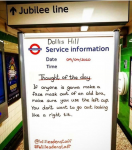 Jubilee line
Dollis Hill
Service information
Date 09/04/2020
Time
Thought of the day
If anyone is gonna make a
face mask out of an old bra,
make sure you use the left cup.
You don't want to go out looking
like a right tit.
@allontheboard